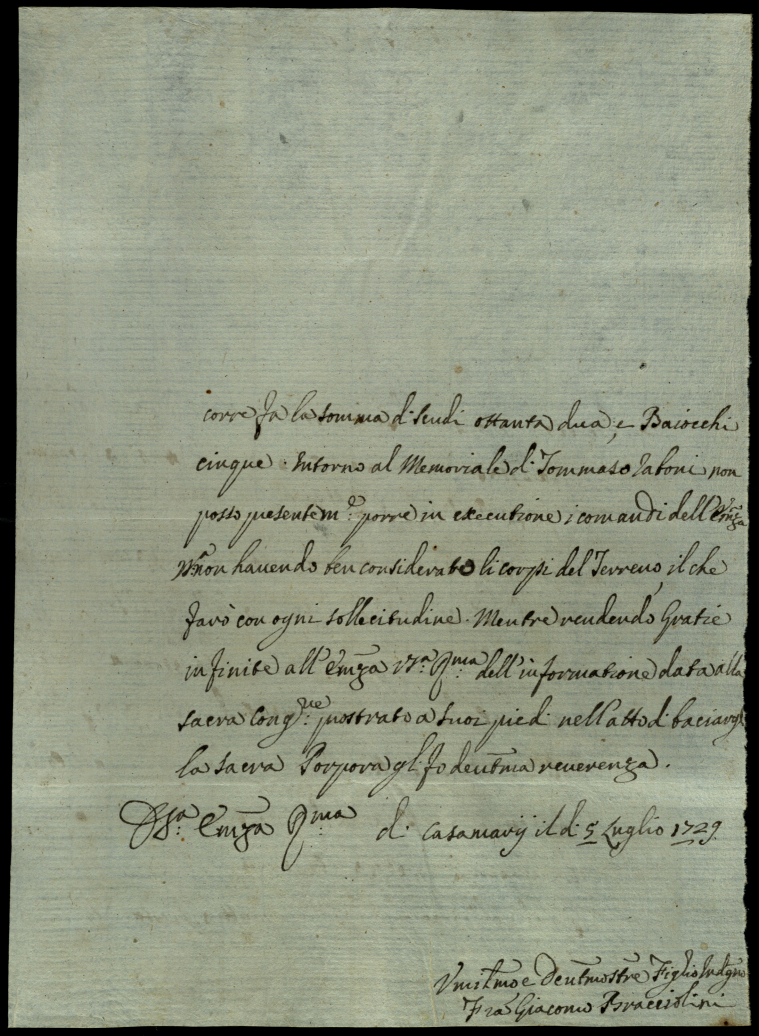 corre fa la somma di scudi ottanta dua, e Baiocchi
cinque. Intorno al Memoriale di Tommaso Iaboni non
posso presentem.e porre in executione i comandi dell'Emza
V.ra non havendo ben considerato li corpi del Terreno, il che
farò con ogni sollecitudine. Mentre rendendo Gratie
infinite all'Emza V.ra R.ma dell'informatione data alla
sacra Cong.ne prostrato a suoi piedi nell'atto di baciargli
la sacra Porpora gli fo deutma reverenza.
D.V.ra Emza R.ma di Casamarij il dì 5 Luglio 1729.
Vmilmo e Deutmo Figlio Indgno
Fra Giacomo Bracciolini